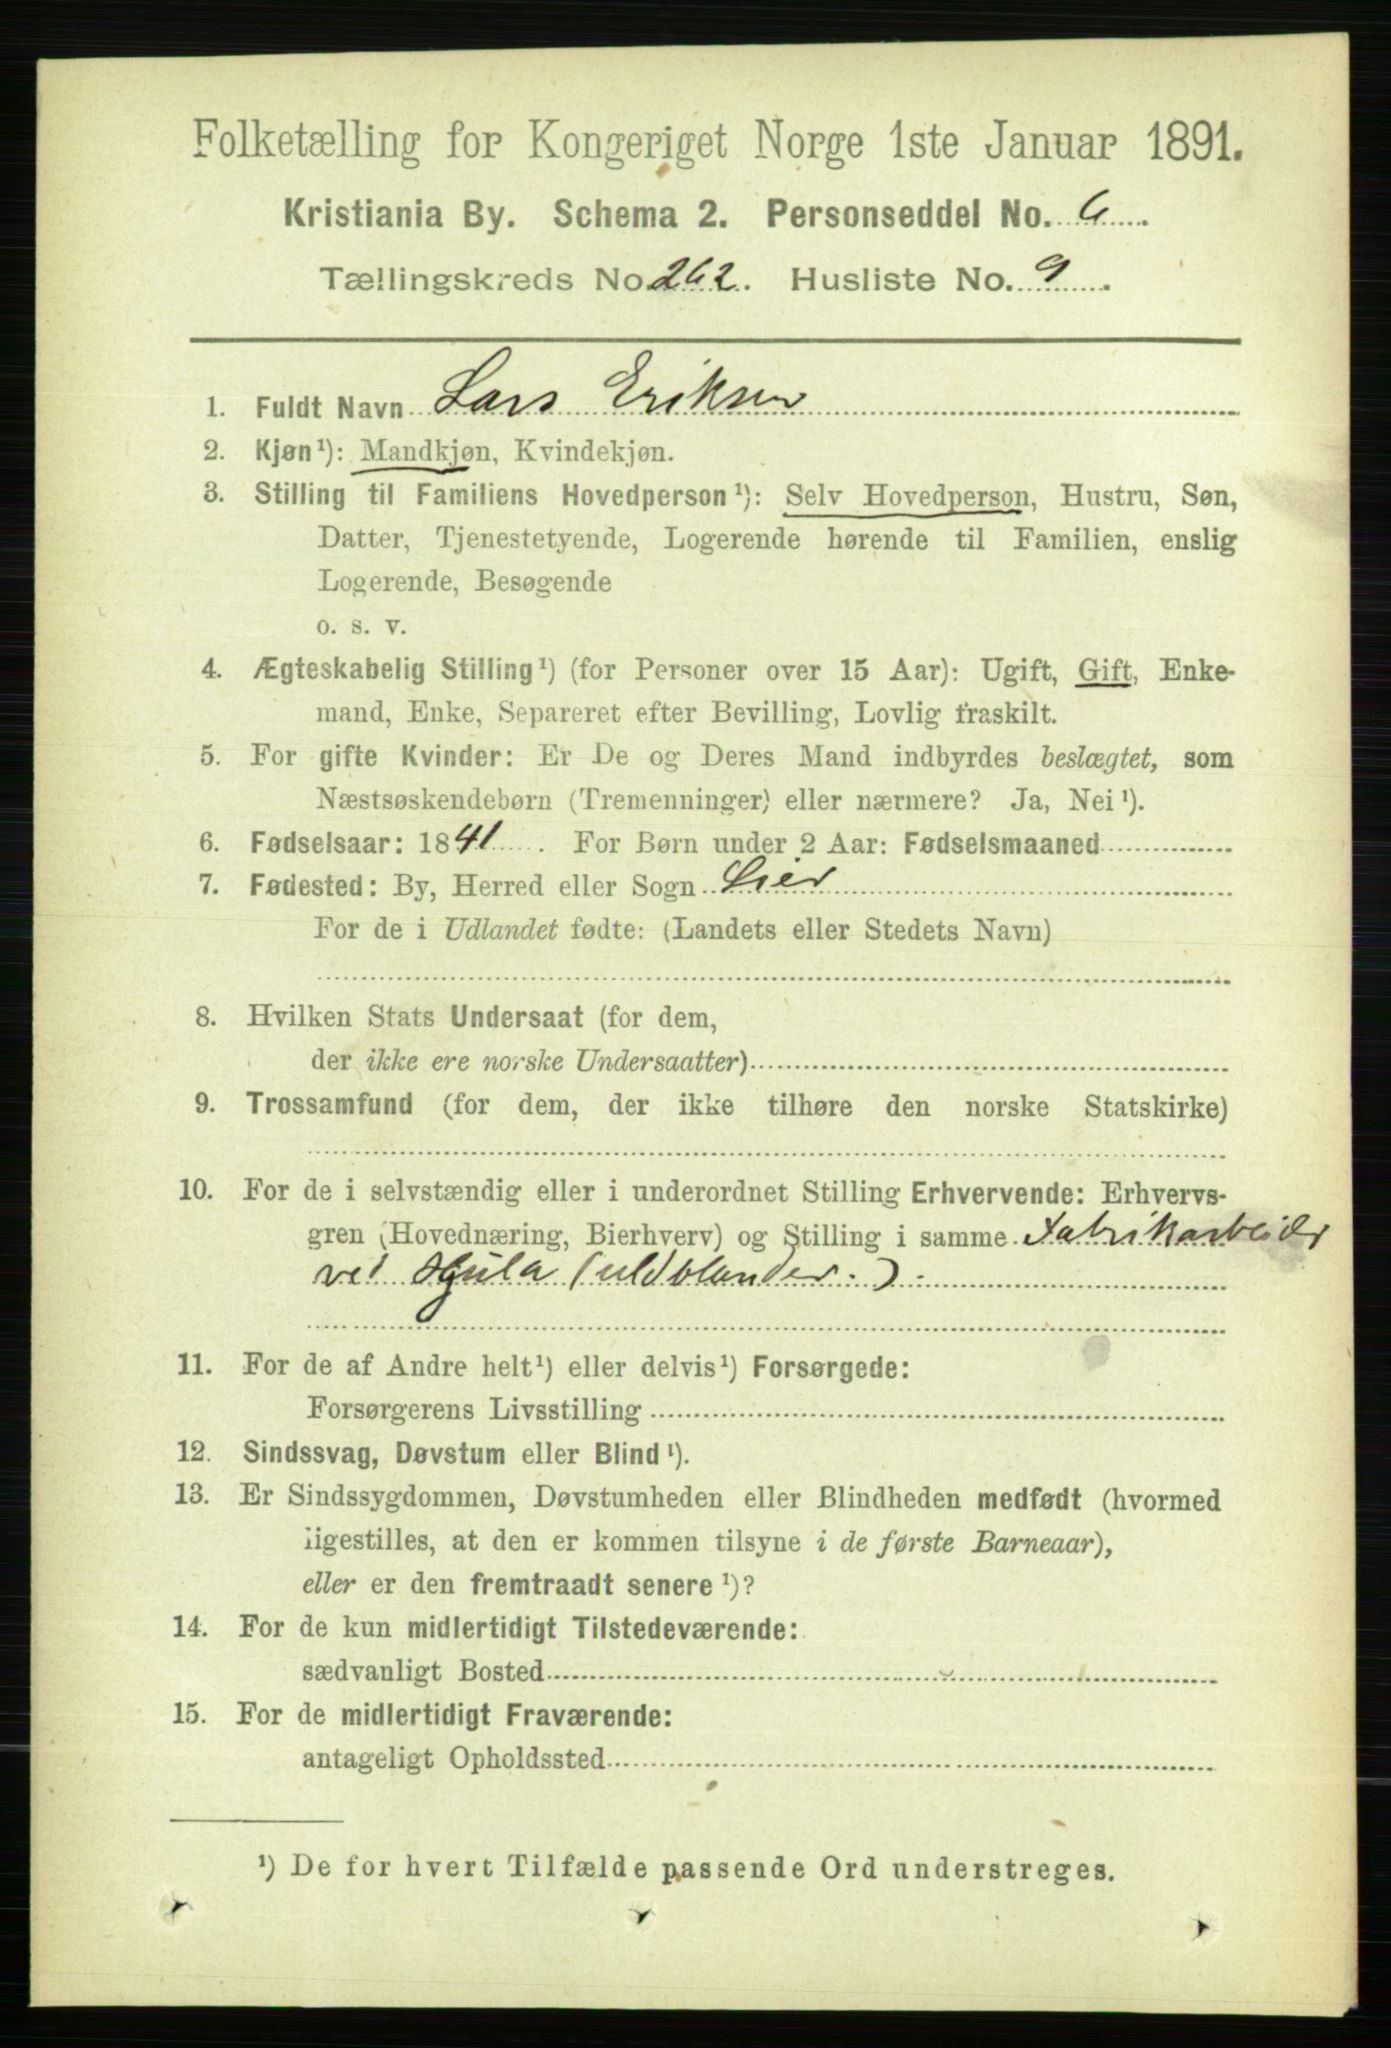 Folketælling for Kongeriget Norge 1ste Januar 1891.
Kristiania By. Schema 2. Personseddel No. 6.
Tællingskreds No. 262. Husliste No. 9.
1. Fuldt Navn Lars Eriksen
2. Kjøn¹): Mandkjøn, Kvindekjøn.
3. Stilling til Familiens Hovedperson¹): Selv Hovedperson, Hustru, Søn,
Datter, Tjenestetyende, Logerende hørende til Familien, enslig
Logerende, Besøgende
o. s. v.
4. Ægteskabelig Stilling¹) (for Personer over 15 Aar): Ugift, Gift, Enke-
mand, Enke, Separeret efter Bevilling, Lovlig fraskilt.
5. For gifte Kvinder: Er De og Deres Mand indbyrdes beslægtet, som
Næstsøskendebørn (Tremenninger) eller nærmere? Ja, Nei¹).
6. Fødselsaar: 1841. For Børn under 2 Aar: Fødselsmaaned
7. Fødested: By, Herred eller Sogn Lier
For de i Udlandet fødte: (Landets eller Stedets Navn)
8. Hvilken Stats Undersaat (for dem,
der ikke ere norske Undersaatter)
9. Trossamfund (for dem, der ikke tilhøre den norske Statskirke)
10. For de i selvstændig eller i underordnet Stilling Erhvervende: Erhvervs-
gren (Hovednæring, Bierhverv) og Stilling i samme Fabrikarbeider
ved Hjula (uldblander.).
11. For de af Andre helt¹) eller delvis¹) Forsørgede:
Forsørgerens Livsstilling
12. Sindssvag, Døvstum eller Blind¹).
13. Er Sindssygdommen, Døvstumheden eller Blindheden medfødt (hvormed
ligestilles, at den er kommen tilsyne i de første Barneaar),
eller er den fremtraadt senere¹)?
14. For de kun midlertidigt Tilstedeværende:
sædvanligt Bosted
15. For de midlertidigt Fraværende:
antageligt Opholdssted
¹) De for hvert Tilfælde passende Ord understreges.